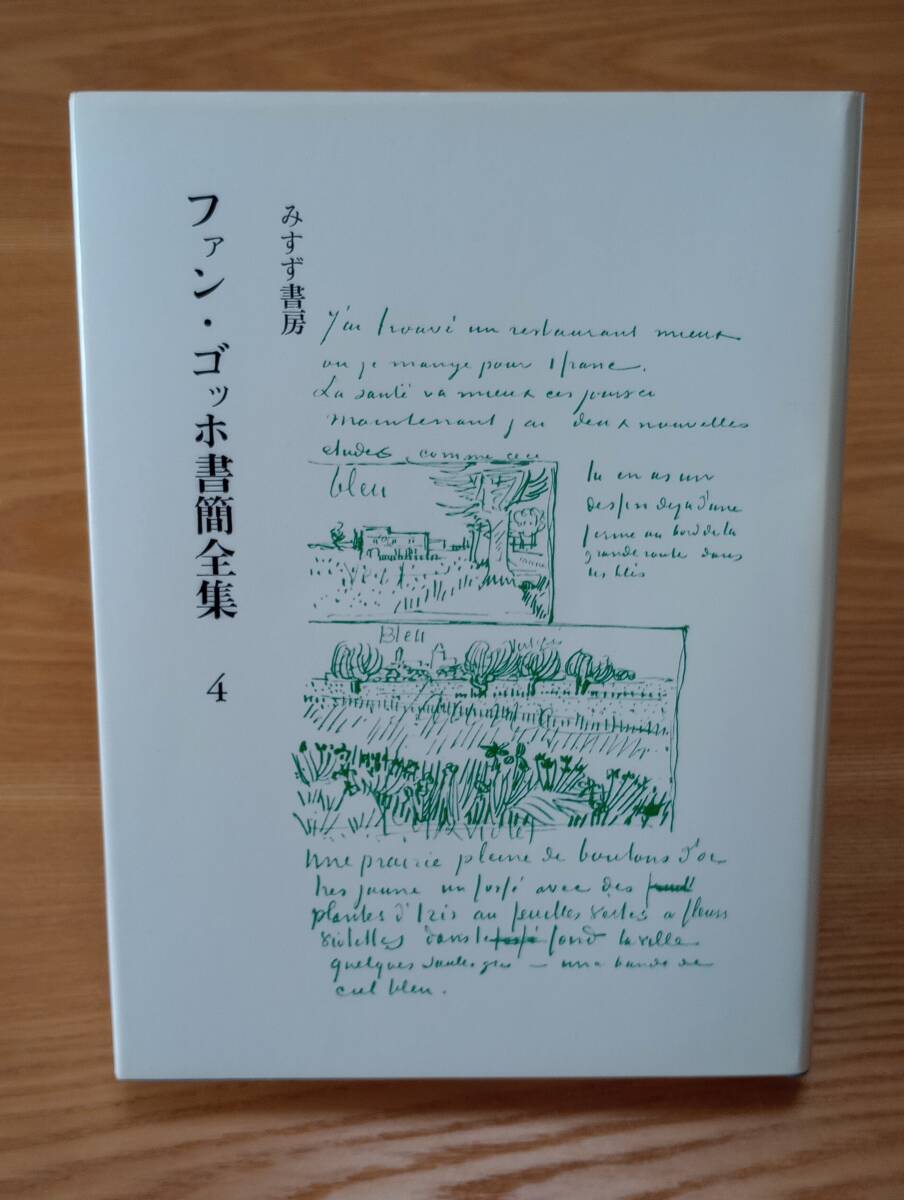 ファン・ゴッホ書簡全集 4
みすず書房
J'ai trouvé un restaurant mieux
ou je mange pour 1 franc.
La santé va mieux ces jours ci
Maintenant j'ai deux nouvelles
etudes comme ceci
bleu
tu en as un
dessin deja d'une
ferme au bord de la
grande route dans
les blés
Bleu
violet
Une prairie pleine de boutons d'or
tres jaune un fossé avec des
plantes d'Iris au feuilles vertes a fleurs
violettes dans le fond la ville
quelques saules gris – une bande de
ciel bleu.